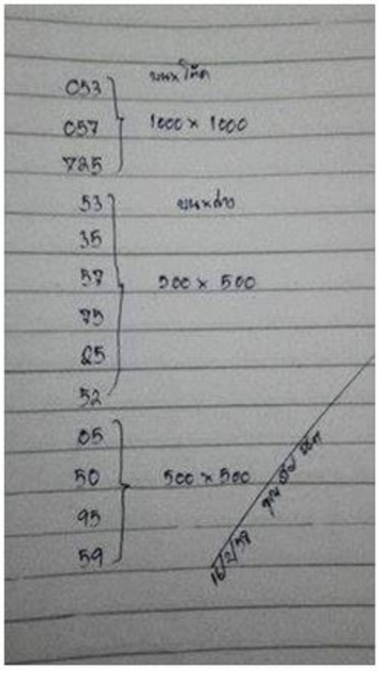 บน x โต๊ด
053
057 1000 x 1000
725
53 บน x ล่าง
35
57 500 x 500
75
25
52
05
50 500 x 500
95
59
16/2/59